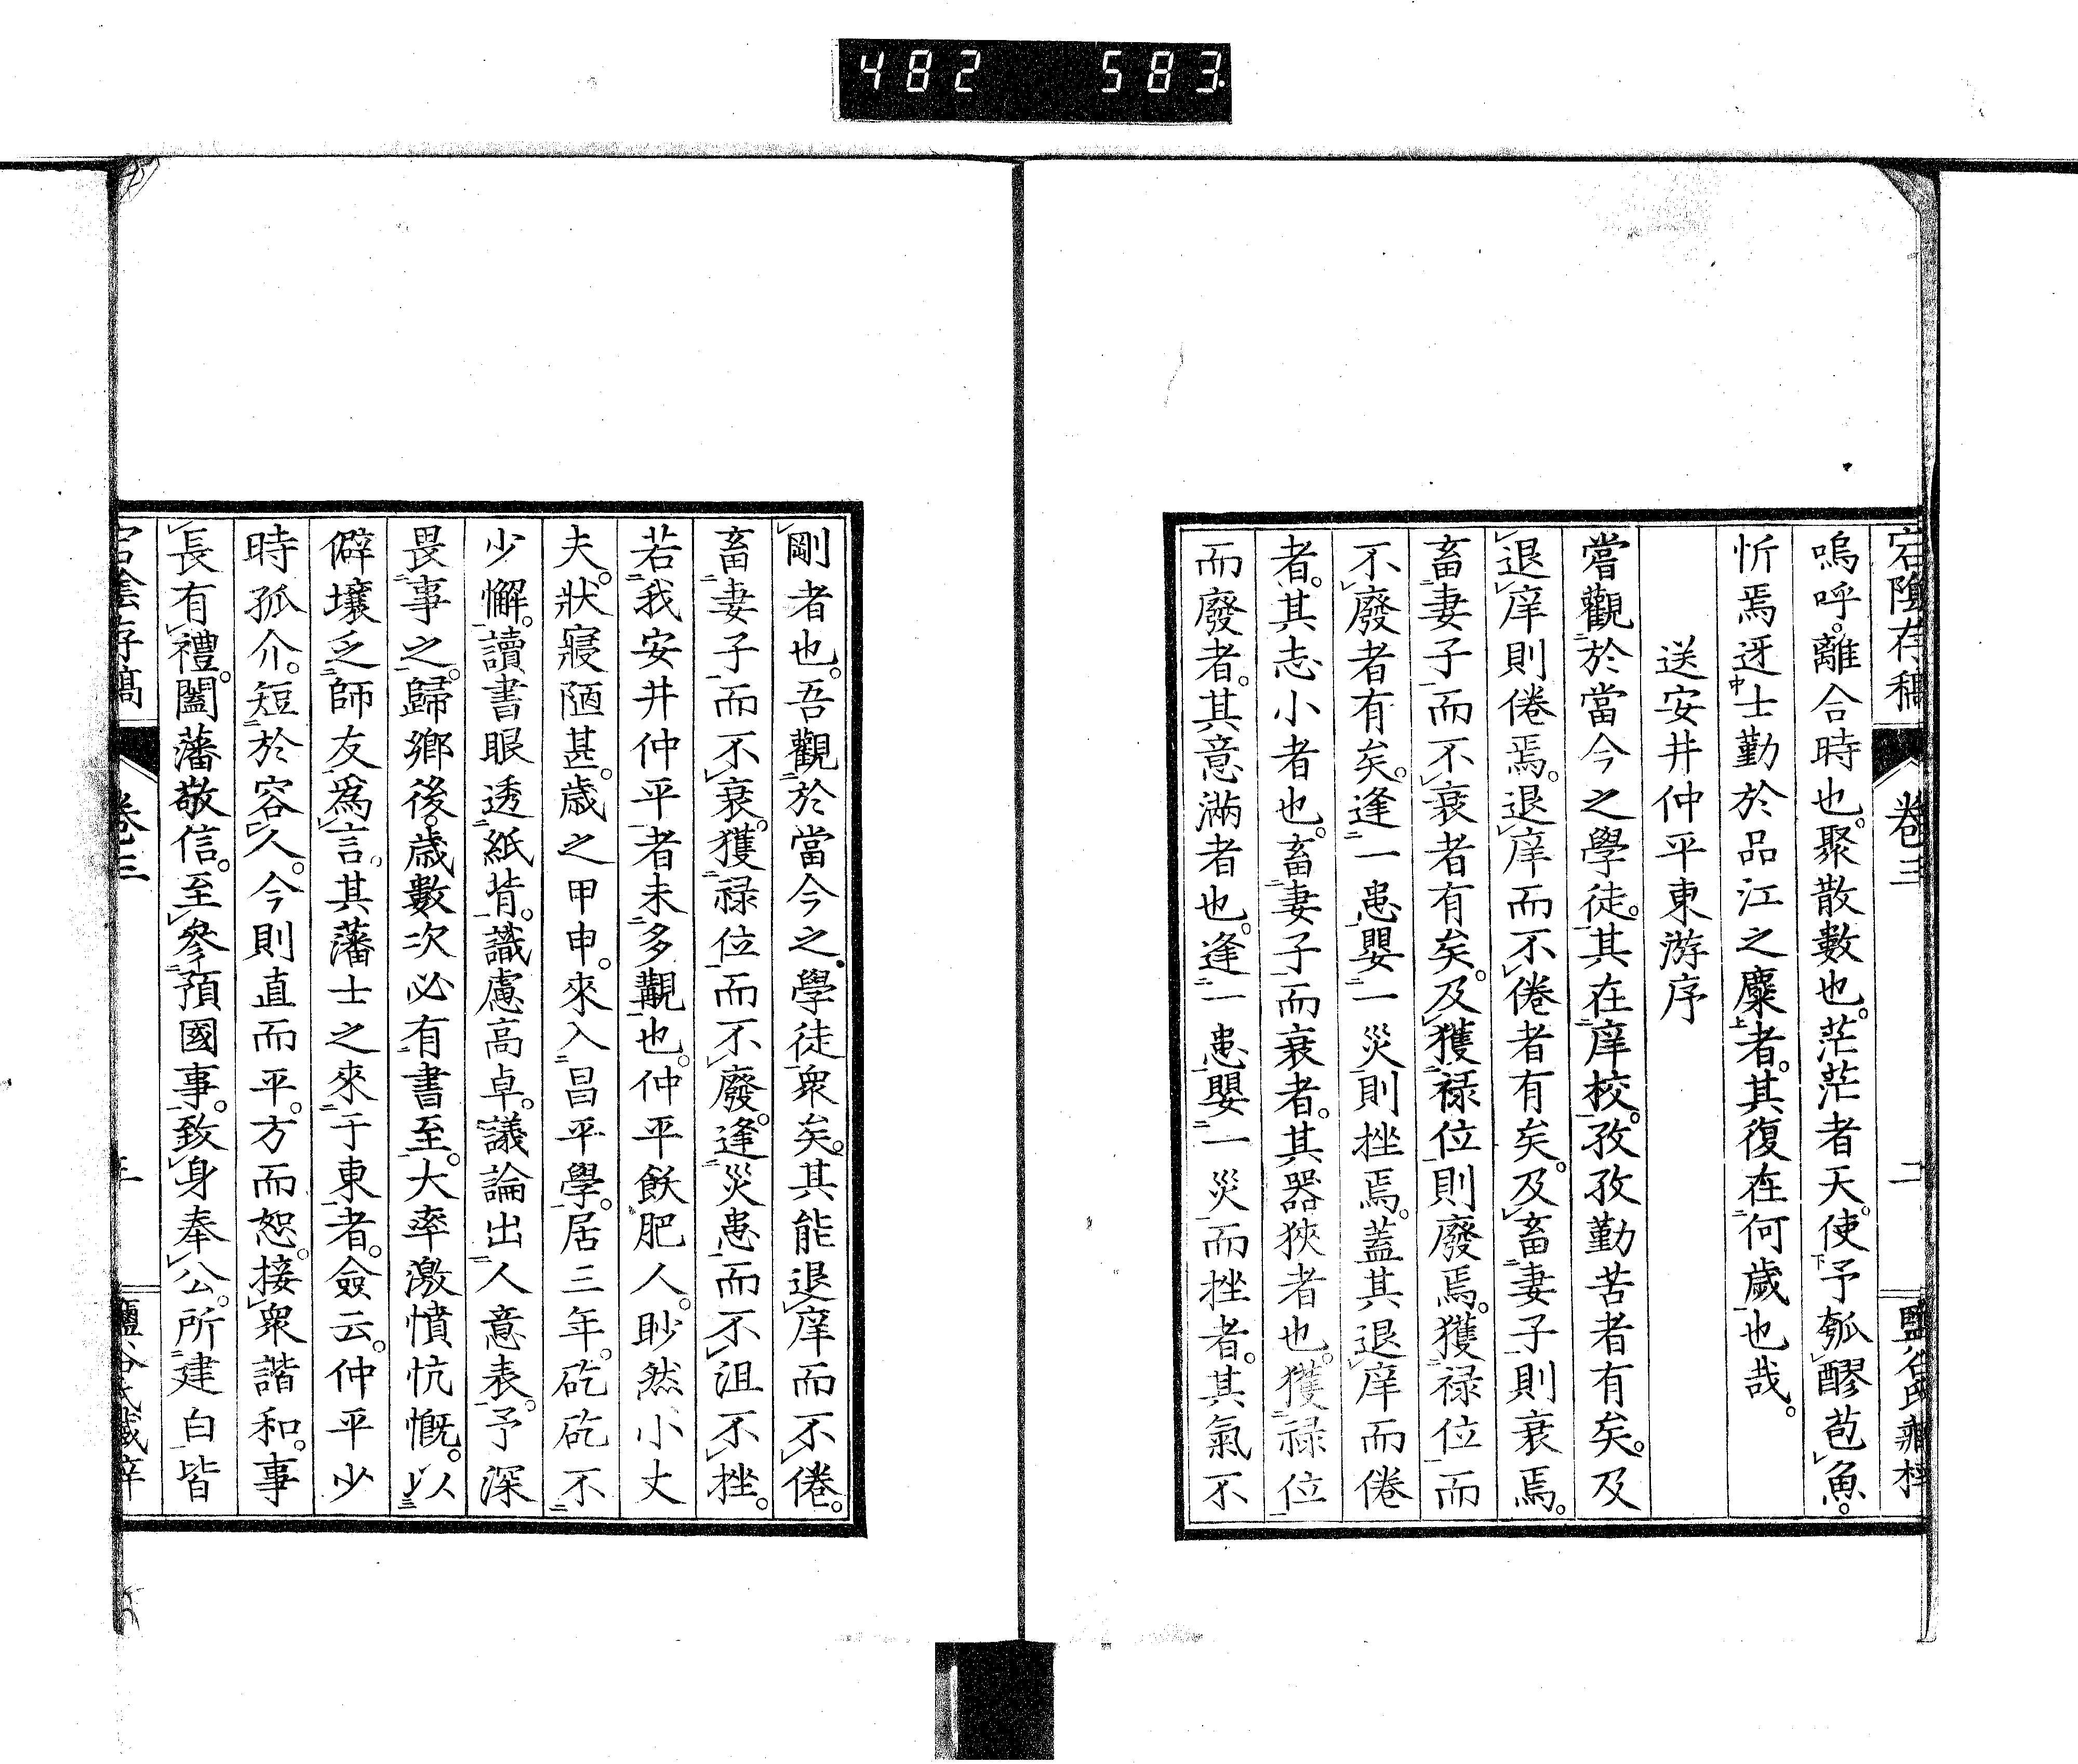 482 583
宕陰存稿 卷三 二 鹽谷氏藏梓
嗚呼。離合時也。聚散數也。茫茫者天。使予瓠醪苞魚。
忻焉迓士勤於品江之麋者。其復在何歲也哉。
送安井仲平東游序
嘗觀於當今之學徒。其在庠校。孜孜勤苦者有矣。及
退庠則倦焉。退庠而不倦者有矣。及畜妻子則衰焉。
畜妻子而不衰者有矣。及獲祿位則廢焉。獲祿位而
不廢者有矣。逢一患嬰一災則挫焉。蓋其退庠而倦
者。其志小者也。畜妻子而衰者。其器狹者也。獲祿位
而廢者。其意滿者也。逢一患嬰一災而挫者。其氣不
剛者也。吾觀於當今之學徒衆矣。其能退庠而不倦。
畜妻子而不衰。獲祿位而不廢。逢災患而不沮不挫。
若我安井仲平者未多觀也。仲平飫肥人。眇然小丈
夫。狀寢陋甚。歲之甲申。來入昌平學。居三年。矻矻不
少懈。讀書眼透紙背。識慮高卓。議論出人意表。予深
畏事之。歸鄉後。歲數次必有書至。大率激憤忼慨。以
僻壤乏師友爲言。其藩士之來于東者。僉云。仲平少
時孤介。短於容久。今則直而平。方而恕。接衆諧和。事
長有禮。闔藩敬信。至參預國事。致身奉公。所建白皆
宕陰存稿 卷三 三 鹽谷氏藏梓